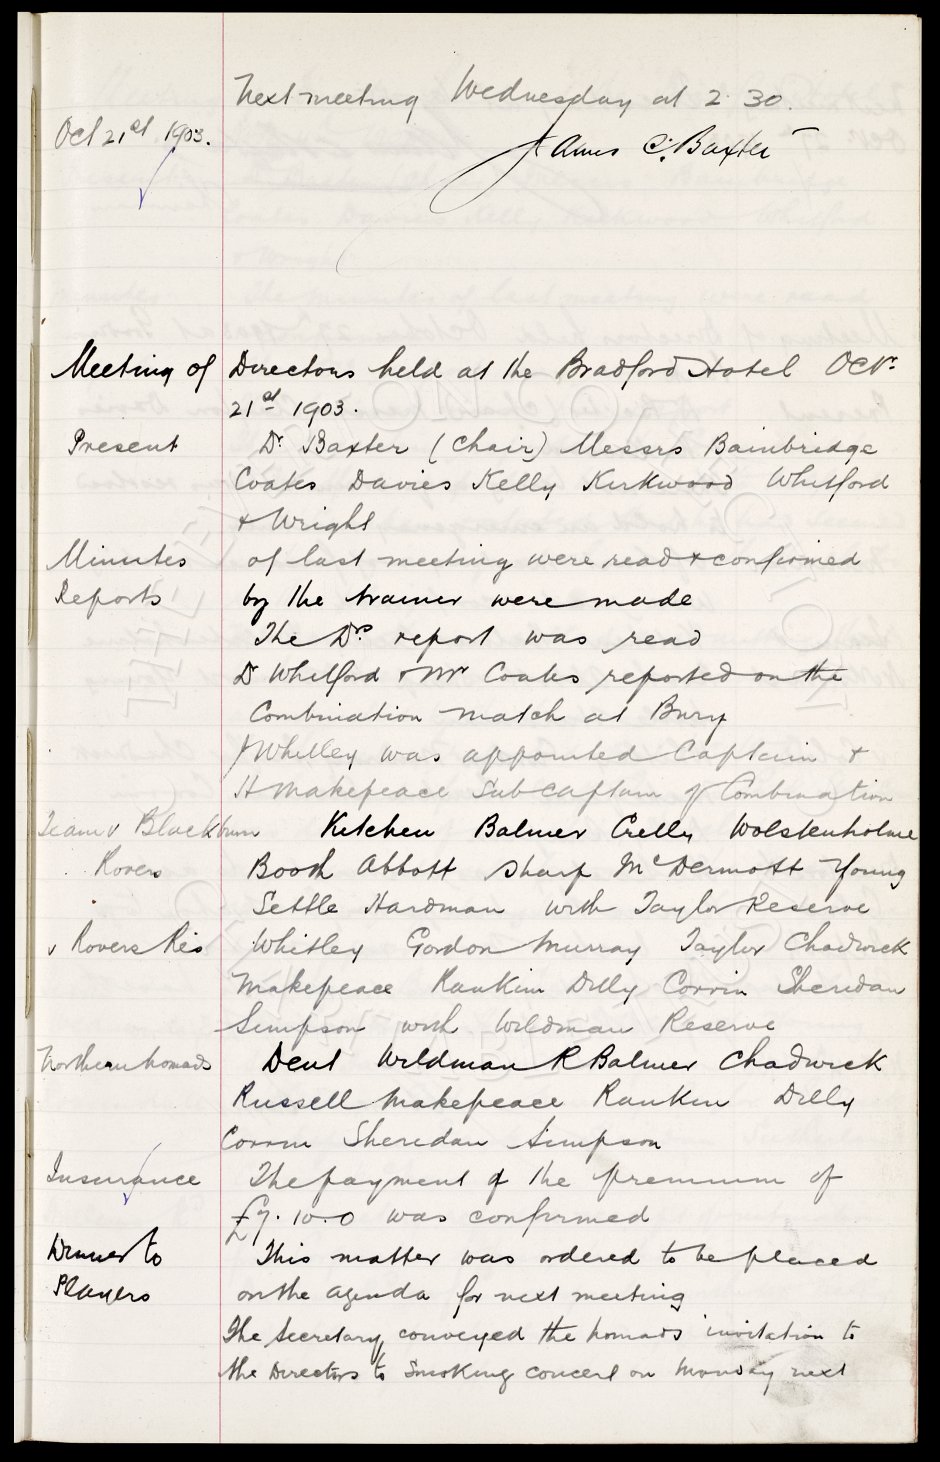 Next meeting Wednesday at 2.30.
Oct 21st 1903.
James C. Baxter
Meeting of Directors held at the Bradford Hotel Octr.
21st 1903.
Present Dr. Baxter (Chair) Messrs Bainbridge
Coates Davies Kelly Kirkwood Whitford
& Wright
Minutes of last meeting were read & confirmed
Reports by the trainer were made
The Drs report was read
Dr Whitford & Mr Coates reported on the
Combination match at Bury
J Whitley was appointed Captain &
H Makepeace Sub Captain of Combination
Team v Blackburn Kitchen Balmer Crelly Wolstenholme
Rovers Booth Abbott Sharp McDermott Young
Settle Hardman with Taylor Reserve
v Rovers Res Whitley Gordon Murray Taylor Chadwick
Makepeace Rankin Dilly Corrin Sheridan
Simpson with Wildman Reserve
Northern Nomads Dent Wildman R Balmer Chadwick
Russell Makepeace Rankin Dilly
Corrin Sheridan Simpson
Insurance The payment of the premium of
£7.10.0 was confirmed
Dinner to This matter was ordered to be placed
Players on the agenda for next meeting
The Secretary conveyed the Nomads invitation to
the Directors to Smoking concert on Monday next